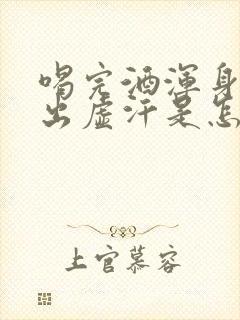 喝完酒浑身
出虚汗是怎
上官慕容